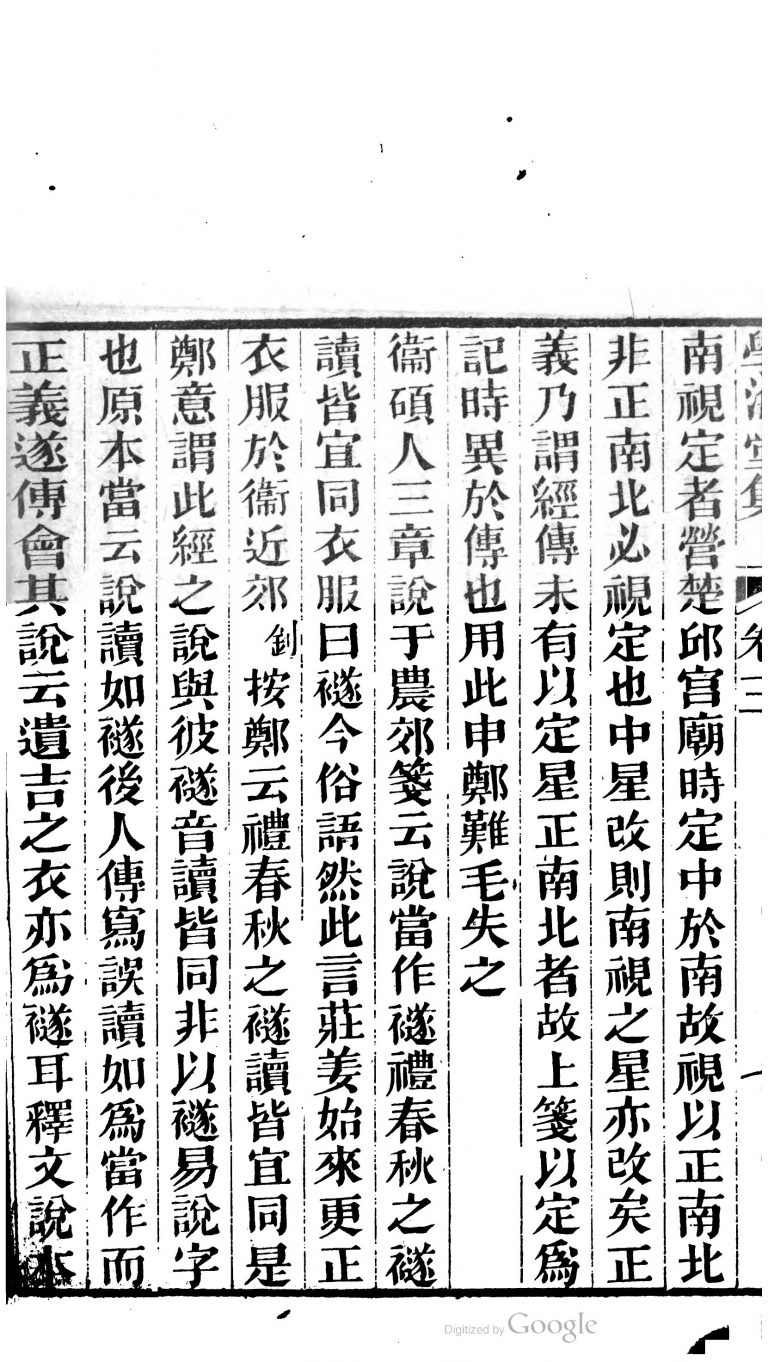 學海堂集 卷三
南視定者營楚邱宮廟時定中於南故視以正南北
非正南北必視定也中星改則南視之星亦改矣正
義乃謂經傳未有以定星正南北者故上箋以定爲
記時異於傳也用此申鄭難毛失之
衞碩人三章說于農郊箋云說當作襚禮春秋之襚
讀皆宜同衣服曰襚今俗語然此言莊姜始來更正
衣服於衞近郊釗按鄭云禮春秋之襚讀皆宜同是
鄭意謂此經之說與彼襚音讀皆同非以襚易說字
也原本當云說讀如襚後人傳寫誤讀如爲當作而
正義遂傳會其說云遺吉之衣亦爲襚耳釋文說本
Digitized by Google